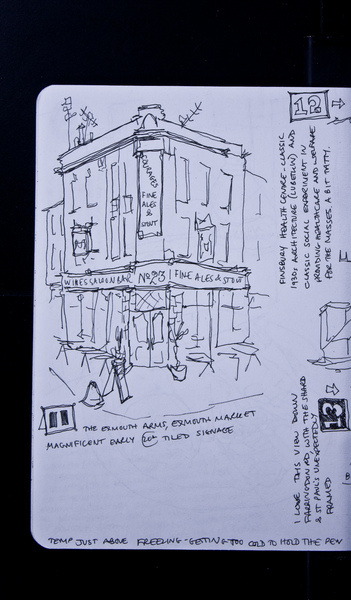 COURAGE'S
FINE
ALES
&
STOUT
WINES SALOON BAR No 23 FINE ALES & STOUT
11
THE EXMOUTH ARMS, EXMOUTH MARKET
MAGNIFICENT EARLY 20C TILED SIGNAGE
12
FINSBURY HEALTH CENTRE - CLASSIC
1930s ARCHITECTURE (LUBETKIN) AND
CLASSIC SOCIAL EXPERIMENT IN
PROVIDING HEALTHCARE AND WELFARE
FOR THE MASSES. A BIT TATTY.
13
I LOVE THIS VIEW DOWN
FARRINGDON RD, WITH THE SHARD
& ST PAUL'S UNEXPECTEDLY
FRAMED
TEMP JUST ABOVE FREEZING - GETTING TOO COLD TO HOLD THE PEN